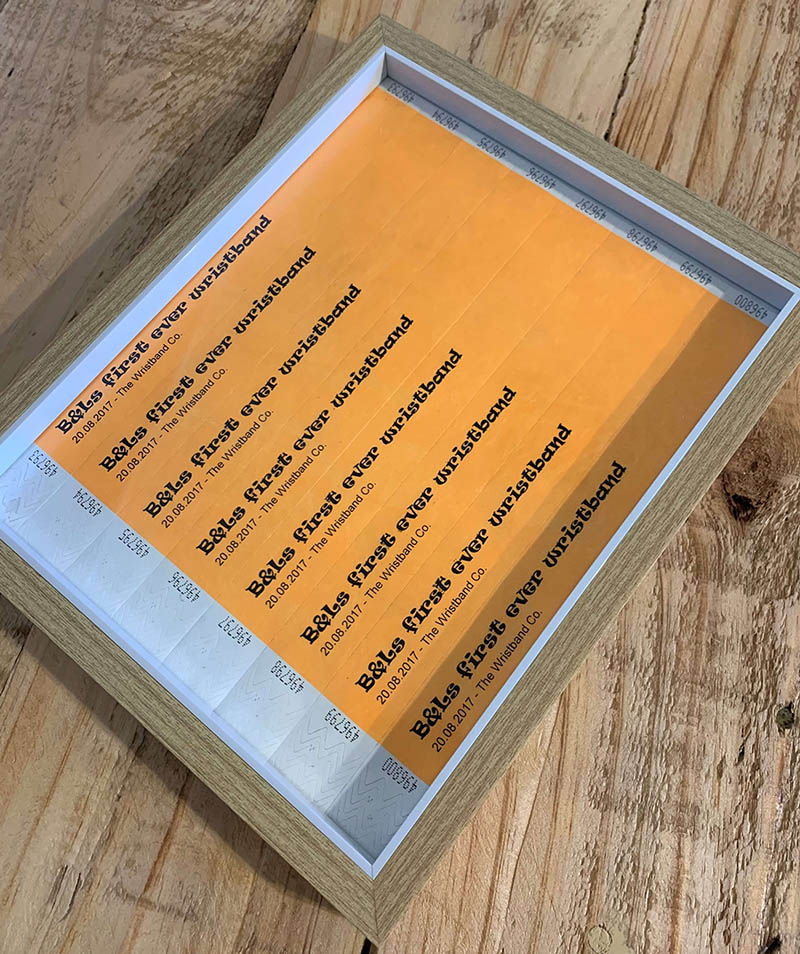 496793
496794
496795
496796
496797
496798
496799
496800
B&Ls first ever wristband
20.08.2017 - The Wristband Co.
B&Ls first ever wristband
20.08.2017 - The Wristband Co.
B&Ls first ever wristband
20.08.2017 - The Wristband Co.
B&Ls first ever wristband
20.08.2017 - The Wristband Co.
B&Ls first ever wristband
20.08.2017 - The Wristband Co.
B&Ls first ever wristband
20.08.2017 - The Wristband Co.
B&Ls first ever wristband
20.08.2017 - The Wristband Co.
B&Ls first ever wristband
20.08.2017 - The Wristband Co.
496793
496794
496795
496796
496797
496798
496799
496800